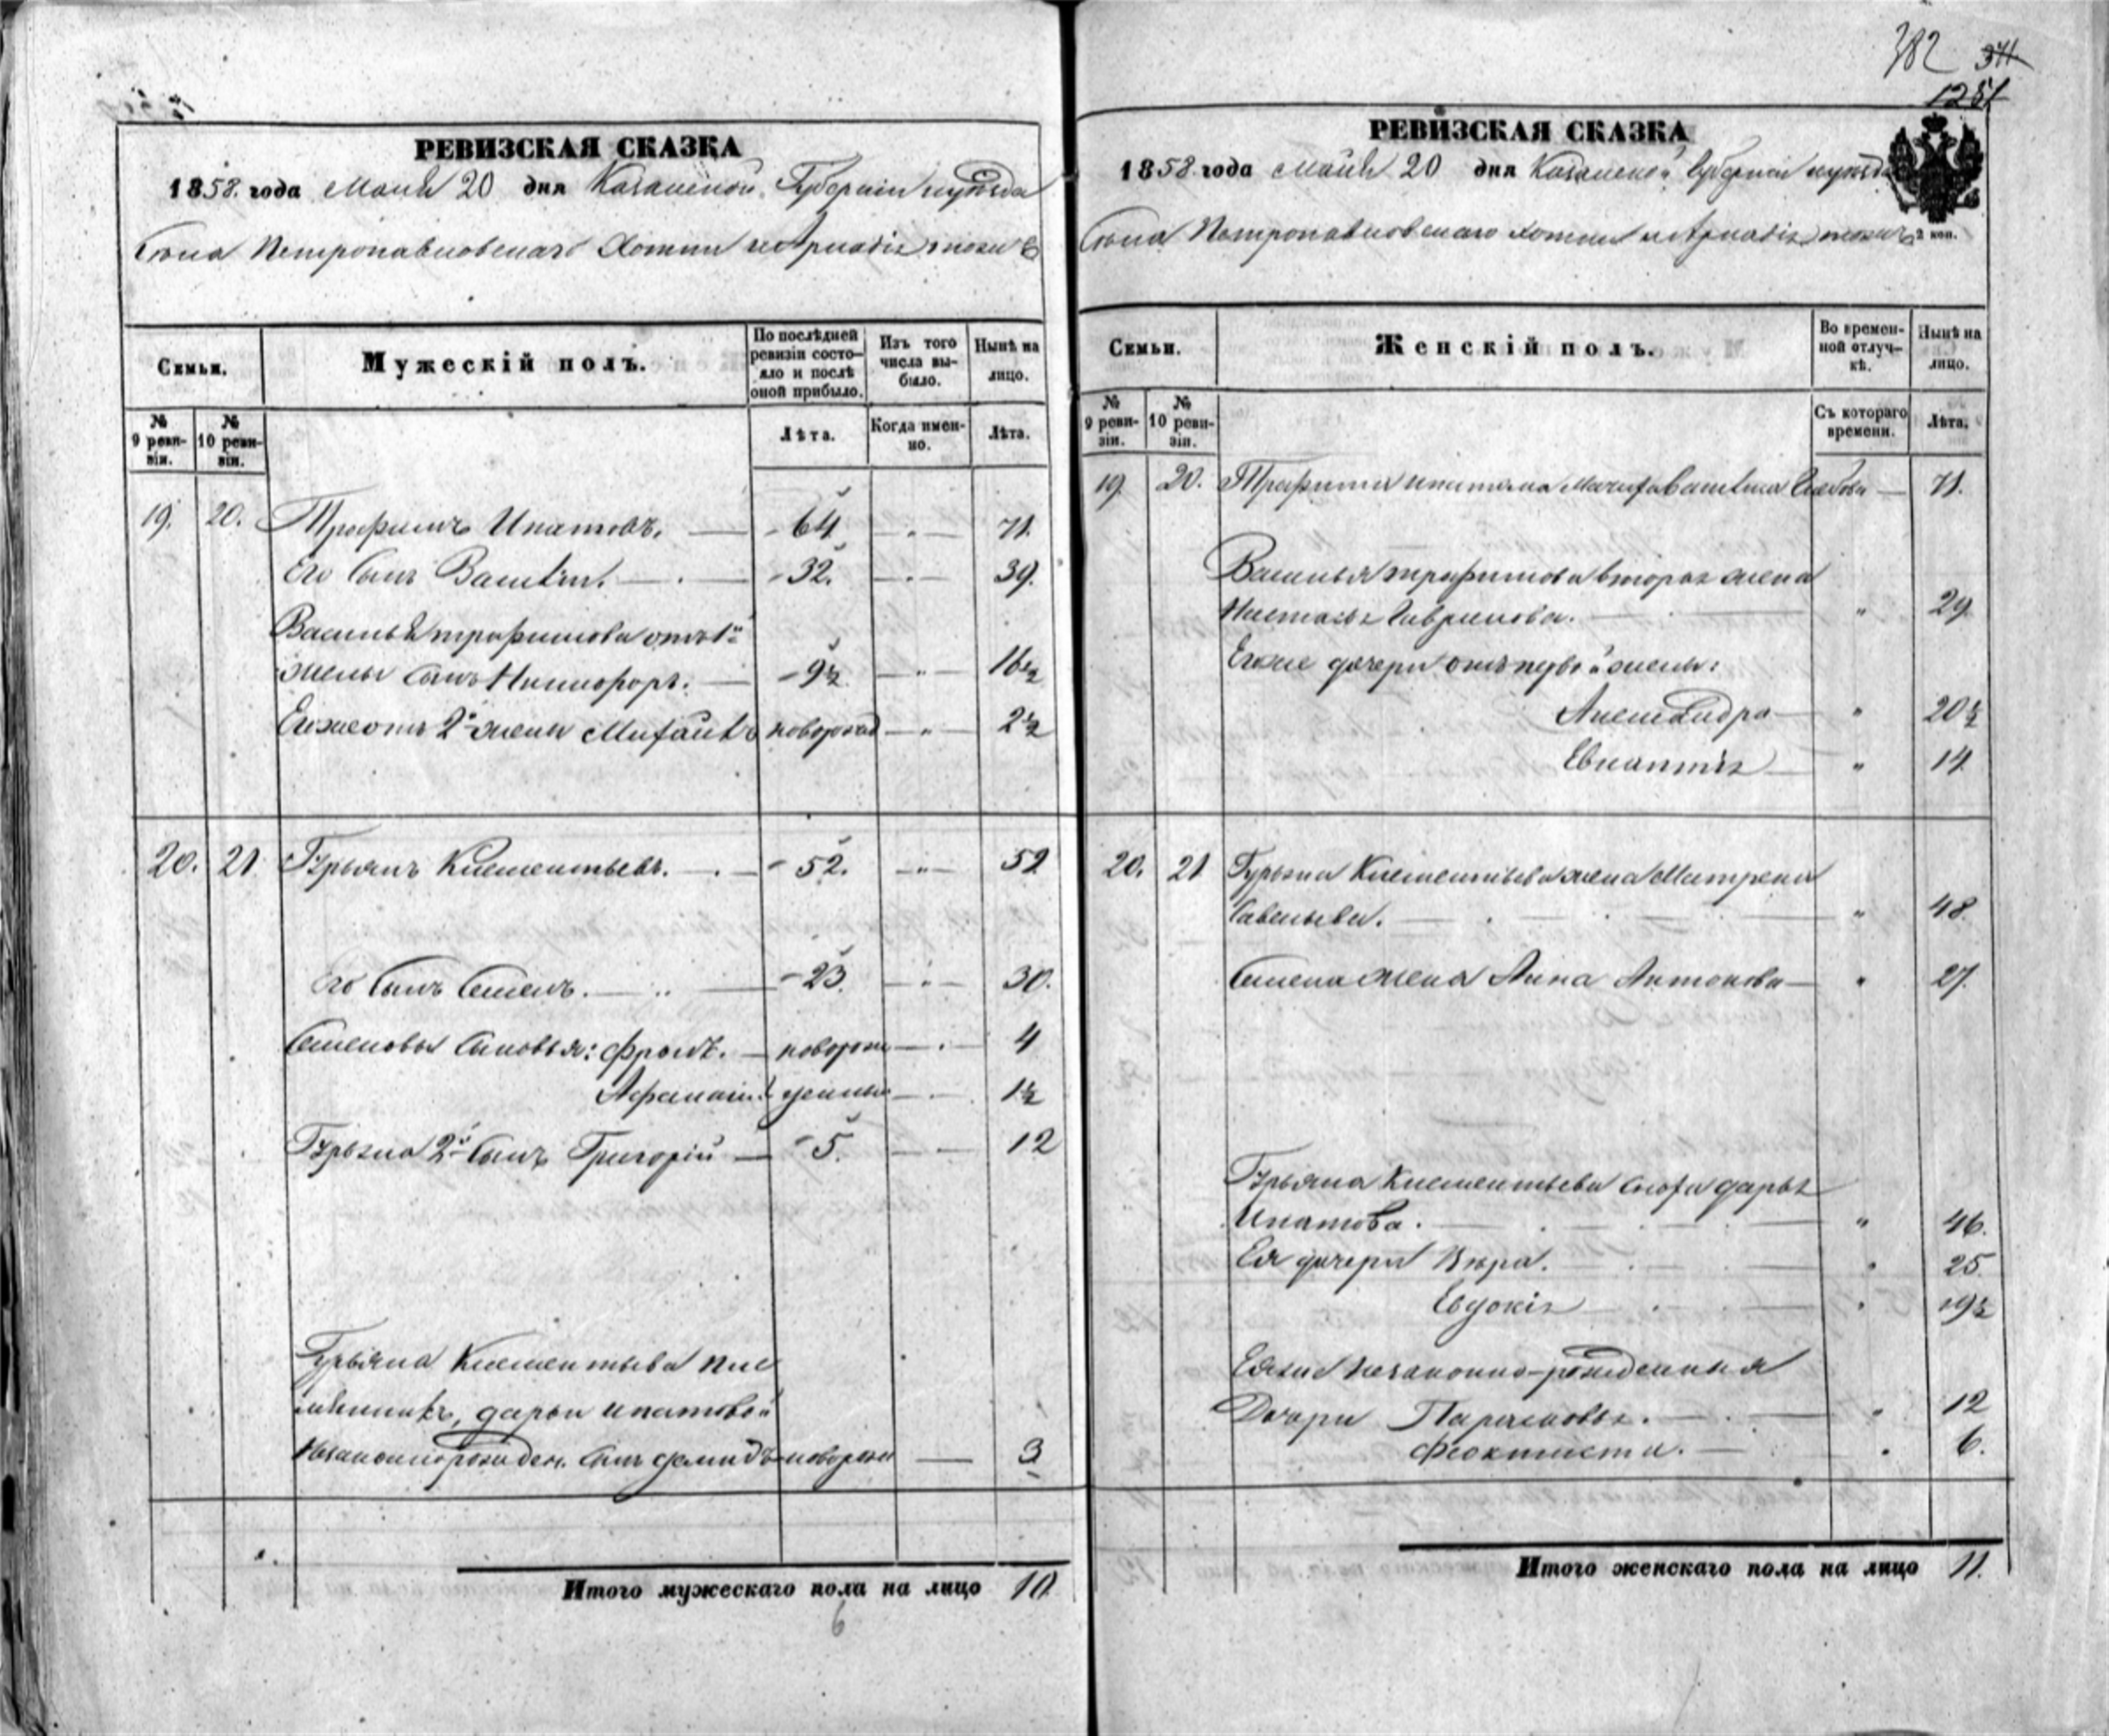 382 371
1251
РЕВИЗСКАЯ СКАЗКА
1858. года Маія 20 дня Казанской Губерніи и уѣзда
Села Петропавловскаго
Семьи.
Мужескій полъ.
По послѣдней ревизіи состояло и послѣ оной прибыло.
Изъ того числа выбыло.
Нынѣ на лицо.
№ 9 ревизіи.
№ 10 ревизіи.
Лѣта.
Когда именно.
Лѣта.
19. 20. Трофимъ Ипатовъ. 64 " 71.
Его сынъ Василій. 32. " 39.
Василья Трофимова отъ 1й
жены сынъ Никифоръ. 9½ " 16½
Его же отъ 2й жены Михаилъ новорожд " 2½
20. 21 Гурьянъ Клементьевъ. 52. " 59
Его сынъ Семенъ. 23. " 30.
Семеновы сыновья: Фролъ. новорож 4
Афанасій денные 1½
Гурьяна 2й сынъ Григорій 5. 12
Гурьяна Клементьева пле
мянникъ, Дарьи Ипатовой
незаконнорожден. сынъ Демидъ новорож 3
Итого мужескаго пола на лицо 10.
6
РЕВИЗСКАЯ СКАЗКА
1858. года Маія 20 дня Казанской Губерніи и уѣзда
Села Петропавловскаго
2 коп.
Семьи.
Женскій полъ.
Во временной отлучкѣ.
Нынѣ на лицо.
№ 9 ревизіи.
№ 10 ревизіи.
Съ котораго времени.
Лѣта.
19. 20. Трофима Ипатова 71.
Василья Трофимова вторая жена
Настасья Гаврилова. " 29
Его же дочери отъ первой жены:
Александра " 20½
Евлампія " 14
20. 21 Гурьяна Клементьева жена Матрена
Савельева. " 48.
Семена жена Анна Антонова " 27.
Гурьяна Клементьева сноха Дарья
Ипатова. " 46.
Ея дочери Вѣра. " 25
Евдокія " 19½
Ея же незаконно-рожденныя
Дочери Парасковья. " 12
Феоктиста. " 6.
Итого женскаго пола на лицо 11.